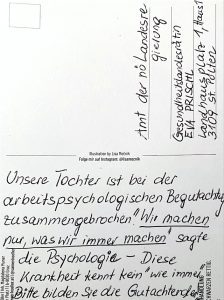 Amt der nö Landesre
gierung
Gesundheitslandesrätin
EVA PRISCHL
Landhausplatz 1, Haus 1
3109 St. Pölten
Illustration by Lisa Resnik
Folge mir auf Instagram: @lisaresnik
Unsere Tochter ist bei der
arbeitspsychologischen Begutachtung
zusammengebrochen. "Wir machen
nur, was wir immer machen" sagte
die Psychologie - Diese
Krankheit kennt kein "wie immer"
Bitte bilden Sie die Gutachter